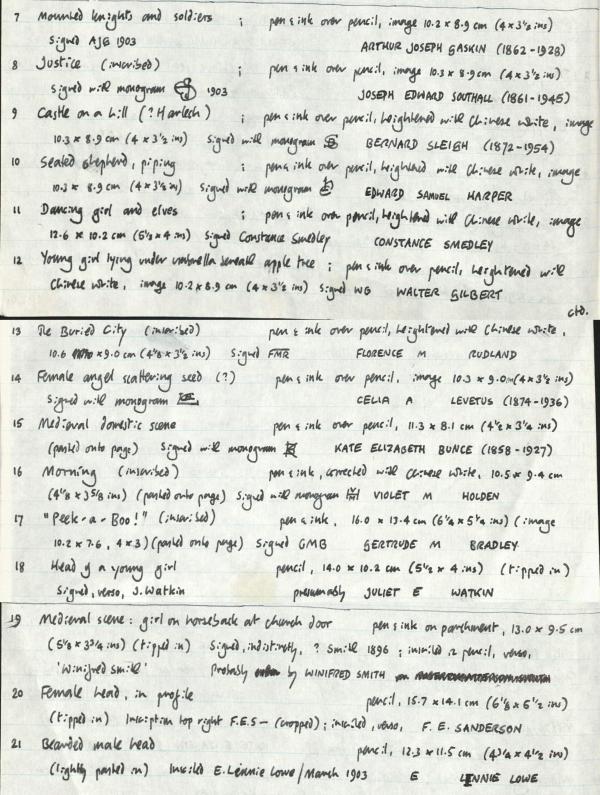 7 Mounted knights and soldiers ; pen & ink over pencil, image 10.2 x 8.9 cm (4 x 3½ ins)
Signed AJG 1903 ARTHUR JOSEPH GASKIN (1862-1928)
8 Justice (inscribed) ; pen & ink over pencil, image 10.3 x 8.9 cm (4 x 3½ ins)
Signed with monogram 1903 JOSEPH EDWARD SOUTHALL (1861-1945)
9 Castle on a hill (? Harlech) ; pen & ink over pencil, heightened with Chinese white, image
10.3 x 8.9 cm (4 x 3½ ins) Signed with monogram BERNARD SLEIGH (1872-1954)
10 Seated shepherd, piping ; pen & ink over pencil, heightened with Chinese white, image
10.3 x 8.9 cm (4 x 3½ ins) Signed with monogram EDWARD SAMUEL HARPER
11 Dancing girl and elves ; pen & ink over pencil, heightened with Chinese white, image
12.6 x 10.2 cm (5⅛ x 4 ins) Signed Constance Smedley CONSTANCE SMEDLEY
12 Young girl lying under umbrella beneath apple tree ; pen & ink over pencil, heightened with
Chinese white, image 10.2 x 8.9 cm (4 x 3½ ins) Signed WG WALTER GILBERT
ctd.
13 The Buried City (inscribed) pen & ink over pencil, heightened with Chinese white,
10.6 x 9.0 cm (4⅛ x 3½ ins) Signed FMR FLORENCE M RUDLAND
14 Female angel scattering seed (?) pen & ink over pencil, image 10.3 x 9.0 cm (4 x 3½ ins)
Signed with monogram CELIA A LEVETUS (1874-1936)
15 Medieval domestic scene pen & ink over pencil, 11.3 x 8.1 cm (4½ x 3¼ ins)
(pasted onto page) Signed with monogram KATE ELIZABETH BUNCE (1858-1927)
16 Morning (inscribed) pen & ink, corrected with Chinese white, 10.5 x 9.4 cm
(4⅛ x 3⅝ ins) (pasted onto page) Signed with monogram VIOLET M HOLDEN
17 "Peek-a-Boo!" (inscribed) pen & ink, 16.0 x 13.4 cm (6¼ x 5¼ ins) (image
10.2 x 7.6, 4 x 3) (pasted onto page) Signed GMB GERTRUDE M BRADLEY
18 Head of a young girl pencil, 14.0 x 10.2 cm (5½ x 4 ins) (tipped in)
Signed, verso, J. Watkin presumably JULIET E WATKIN
19 Medieval scene: girl on horseback at church door pen & ink on parchment, 13.0 x 9.5 cm
(5⅛ x 3¾ ins) (tipped in) Signed, indistinctly, ? Smith 1896 ; inscribed in pencil, verso,
'Winifred Smith' Probably by WINIFRED SMITH
20 Female head, in profile pencil, 15.7 x 14.1 cm (6⅛ x 5½ ins)
(tipped in) Inscription top right F.E.S – (cropped) ; inscribed, verso, F. E. SANDERSON
21 Bearded male head pencil, 12.3 x 11.5 cm (4¾ x 4½ ins)
(lightly pasted in) Inscribed E. Linnie Lowe / March 1903 E LINNIE LOWE